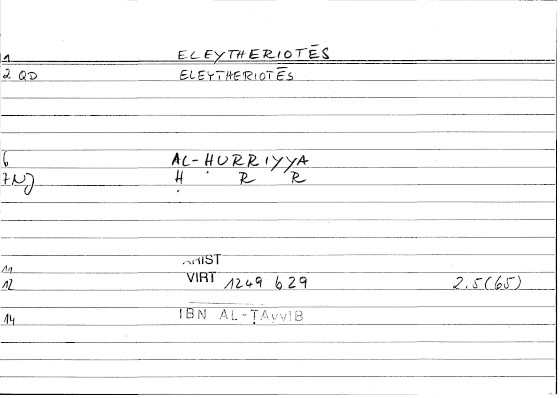 1 ELEYTHERIOTĒS
2 QD ELEYTHERIOTĒS
6 AL-ḤURRIYYA
7 NJ Ḥ R R
11 ARIST
12 VIRT 1249 b 29 2.5(65)
14 IBN AL-ṬAyyIB